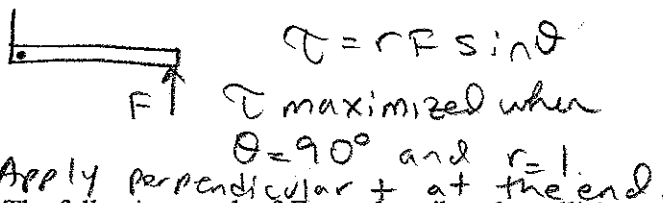 τ = r F sin θ
F τ maximized when
θ = 90° and r = 1.
Apply perpendicular + at the end.